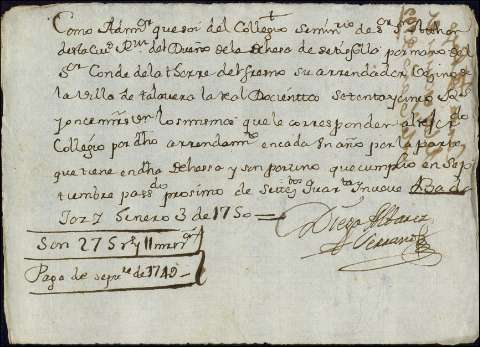 Como Admor que soi del Collegio Seminrio de Sr Sn Athon
desta Ciud Rvi del Dueño de la dehesa de setefilla por mano del
Sr Conde de la torre del fresno su arrendador Vezino de
la Villa de talavera la real Docientos setenta y cinco Rs
y once mrs vn los mismos que le corresponden al refcdo
Collegio por dho arrendamto en cada un año por la parte
que tiene en dha Dehessa y son por uno que cumplio en Sep
tiembre pasdo proximo de Settezdos Quarta y nueve Bada
Joz y Henero 3 de 1750=
Diego Albarez
Serrano
Son 275 rs y 11 mrs
Paga de sepre de 1749